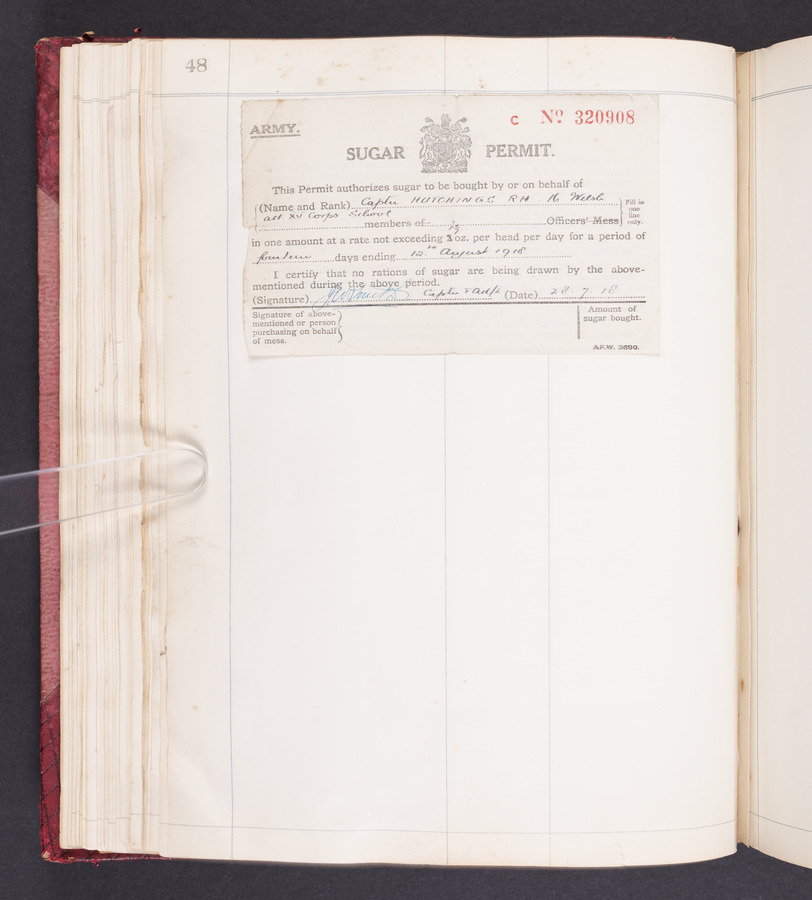 48
ARMY.
C Nº 320908
SUGAR PERMIT.
This Permit authorizes sugar to be bought by or on behalf of
(Name and Rank) Captn HUTCHINGS R H 16 Welsh
att XV Corps School
Fill in
one
line
only.
members of- Officers' Mess
in one amount at a rate not exceeding oz. per head per day for a period of
fourteen days ending 12th August 1918
I certify that no rations of sugar are being drawn by the above-
mentioned during the above period.
(Signature) Captn & Adjt (Date) 28.7.18
Signature of above-
mentioned or person
purchasing on behalf
of mess.
Amount of
sugar bought.
A.F.W. 3880.